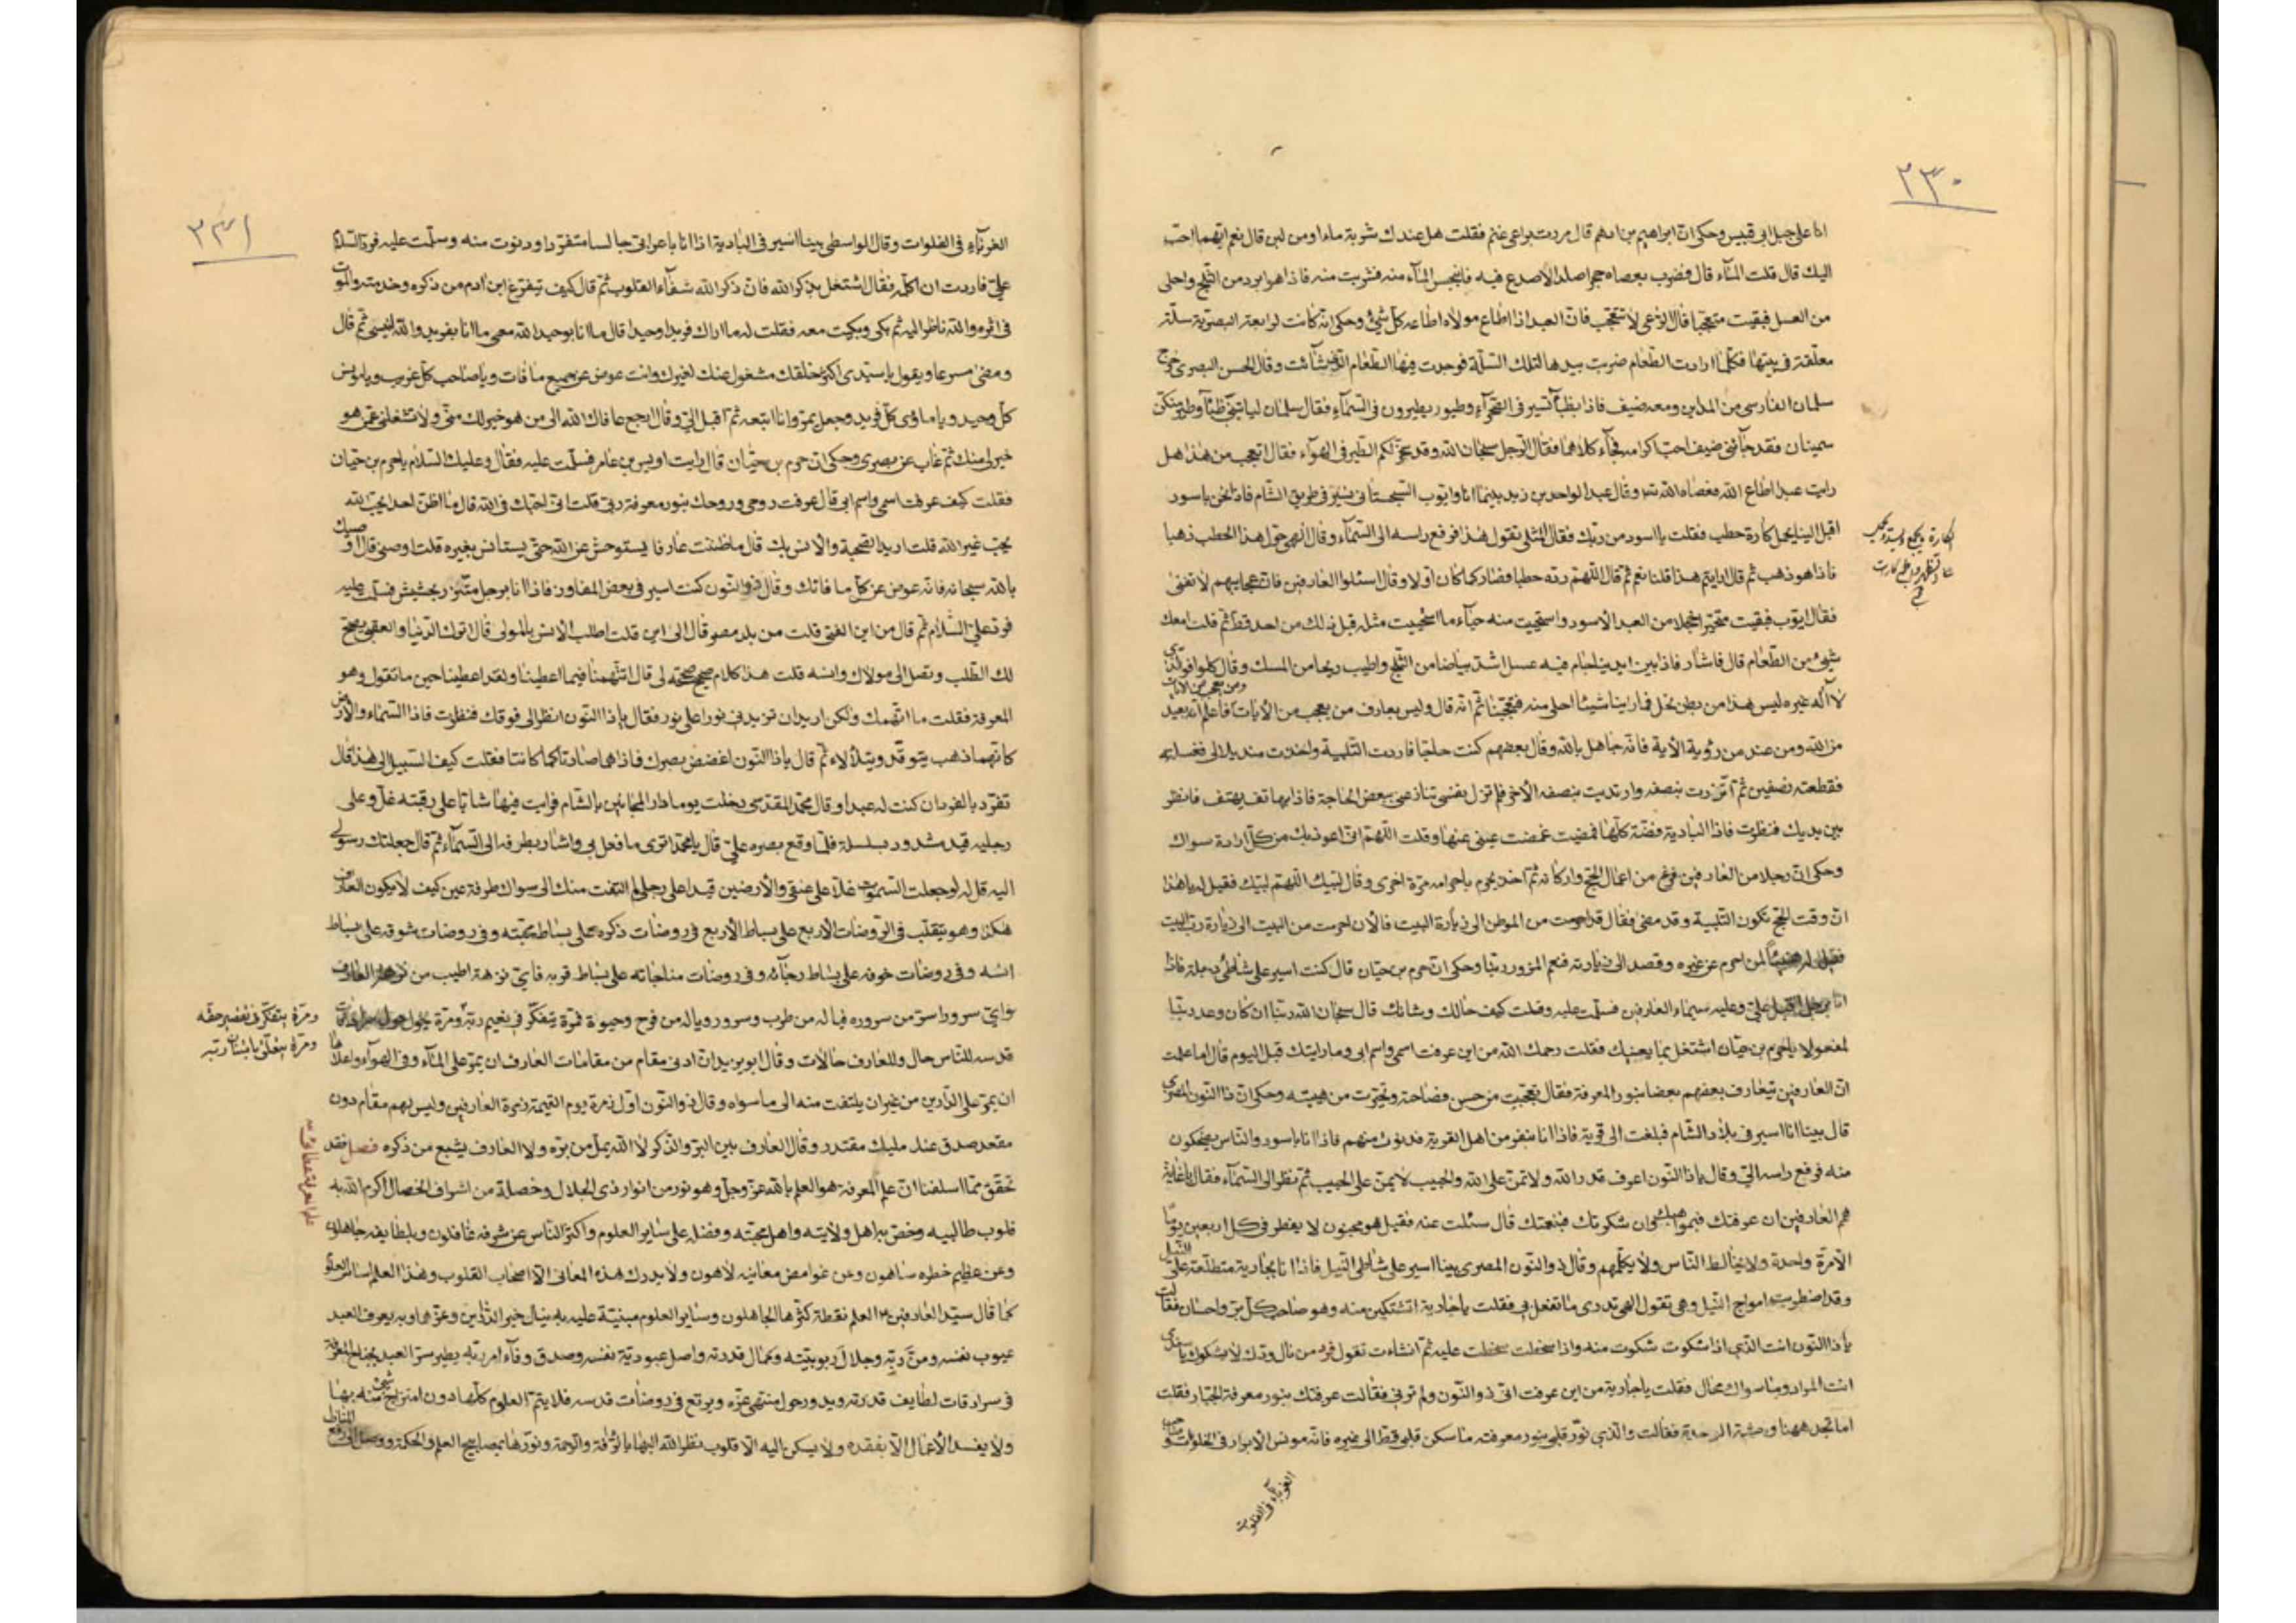 ٢٣٠
انا على جبل ابى قبيس وحكى ان ابراهيم بن ادهم قال مررت براعى غنم فقلت هل عندك شربة ماء او من لبن قال نعم ايهما احب
اليك قال قلت الماء قال فضرب بعصاه حجرا صلدا لا صدع فيه فانبجس الماء منه فشربت منه فاذا هو ابرد من الثلج واحلى
من العسل فبقيت متعجبا قال الراعى لا تتعجب فان العبد اذا اطاع مولاه اطاعه كل شىء وحكى انه كانت لرابعة البصرية سلة
معلقة فى بيتها فكلما ارادت الطعام ضربت بيدها الى تلك السلة فوجدت فيها الطعام الذى شاءت وقال الحسن البصرى خرج
سلمان الفارسى من المداين ومعه ضيف فاذا بظباء تسير فى الصحراء وطيور يطيرون فى السماء فقال سلمان لياتينى ظبى وطير منكن
سمينان فقد جاءنى ضيف احب اكرامه فجاء كلاهما فقال الرجل سبحان الله وقد سخر لكم الطير فى الهواء فقال اتعجب من هذا هل
رايت عبدا اطاع الله فعصاه الله شىء وقال عبد الواحد بن زيد بينما انا وايوب السجستانى نسير فى طريق الشام فاذا نحن باسود
اقبل الينا يحمل كارة حطب فقلت يا اسود من ربك فقال المثلى تقول هذا فرفع راسه الى السماء وقال الهى حول هذا الحطب ذهبا
فاذا هو ذهب ثم قال ارايتم هذا قلنا نعم ثم قال اللهم رده حطبا فصار كما كان اولا وقال اسئلوا العارفين فان عجايبهم لا تفنى
فقال ايوب فبقيت متحيرا خجلا من العبد الاسود واستحييت منه حياء ما استحييت مثله قبل ذلك من احد قط ثم قلت امعك
شىء من الطعام قال فاشار فاذا بين ايدينا جام فيه عسل اشد بياضا من الثلج واطيب ريحا من المسك وقال كلوا فو الذى
لا اله غيره ليس هذا من بطن نحل فما راينا شيئا احلى منه فتعجبنا ثم انه قال وليس بعارف من يعجب من الايات فاعلم انه بعيد
من الله ومن عبد من رؤية الاية فانه جاهل بالله وقال بعضهم كنت حاجا فاردت التلبية واخذت منديلا لى فغسلته
فقطعته نصفين ثم اتزرت بنصفه وارتديت بنصفه الاخر فلم تزل نفسى تنازعنى ببعض الحاجة فاذا بهاتف يهتف فانظر
بين يديك فنظرت فاذا البادية فضة كلها فمضيت غمضت عينى عنها وقلت اللهم انى اعوذ بك من كل ارادة سواك
وحكى ان رجلا من العارفين فرغ من اعمال الحج واركانه ثم اخذ يحرم باحرامه مرة اخرى وقال لبيك اللهم لبيك فقيل له يا هذا
ان وقت الحج تكون التلبية وقد مضى فقال قد احرمت من الموطن الى زيارة البيت فالان احرمت من البيت الى زيارة رب البيت
فقيل له هنيئا لمن احرم عن غيره وقصد الى زيارته فنعم المزور ربنا وحكى ان هرم بن حيان قال كنت اسير على شاطئ دجلة فاذا
انا برجل اقبل على وعليه سيماء العارفين فسلمت عليه وقلت كيف حالك وشانك قال سبحان الله ربنا ان كان وعد ربنا
لمفعولا يا هرم بن حيان اشتغل بما يعنيك فقلت رحمك الله من اين عرفت اسمى واسم ابى وما رايتك قبل اليوم قال اما علمت
ان العارفين يتعارف بعضهم بعضا بنور المعرفة فقال تعجبت من حسن فصاحته وتحيرت من هيبته وحكى ان ذا النون المصرى
قال بينا انا اسير فى بلاد الشام فبلغت الى قرية فاذا انا بنفر من اهل القرية فدنوت منهم فاذا انا باسود والناس يضحكون
منه فرفع راسه الى وقال يا ذا النون اعرف قدر الله ولا تمن على الله والحبيب لا يمن على الحبيب ثم نظر الى السماء فقال يا غاية
هم العارفين ان عرفتك فبمواهبك وان شكوتك فبنعمتك قال سئلت عنه فقيل هو مجنون لا يفطر فى كل اربعين يوما
الا مرة واحدة ولا يخالط الناس ولا يكلمهم وقال ذو النون المصرى بينا اسير على شاطئ النيل فاذا انا بجارية متطلعة على النيل
وقد اضطربت امواج النيل وهى تقول الهى تدرى ما تفعل بى فقلت يا جارية اتشتكين منه وهو صاحب كل بر واحسان فقالت
يا ذا النون انت الذى اذا شكوت شكوت منه واذا سخطت سخطت عليه ثم انشاءت تقول فرد من نال ودك لا يشكوك يا سيدى
انت المراد وما سواك محال فقلت يا جارية من اين عرفت انى ذو النون ولم ترنى فقالت عرفتك بنور معرفة الجبار فقلت
اما تجد ههنا وحشة الوحدة فقالت والذى نور قلبى بنور معرفته ما سكن قلبى قط الى غيره فانه مونس الابرار فى الخلوات
الغرباء فى الفلوات
٢٣١
الغرباء فى الفلوات وقال الواسطى بينا اسير فى البادية اذا انا باعرابى جالسا متفردا ودنوت منه وسلمت عليه فرد السلام
على فاردت ان اكلمه فقال اشتغل بذكر الله فان ذكر الله شفاء القلوب ثم قال كيف يتفرغ ابن ادم من ذكره وخدمته والموت
فى اثره والله ناظر اليه ثم بكى وبكيت معه فقلت له ما اراك فريدا وحيدا قال ما انا بوحيد الله معى ما انا بفريد والله انيسى ثم قال
ومضى مسرعا ويقول يا سيدى اكثر خلقك مشغول عنك لغيرك وانت عوض عن جميع ما فات ويا صاحب كل غريب ويا مونس
كل وحيد ويا ماوى كل فريد وجعل يمر وانا اتبعه ثم اقبل الى وقال ارجع عافاك الله الى من هو خير لك منى ولا تشغلنى عمن هو
خير لى منك ثم غاب عن بصرى وحكى ان هرم بن حيان قال رايت اويس بن عامر فسلمت عليه فقال وعليك السلام يا هرم بن حيان
فقلت كيف عرفت اسمى واسم ابى قال عرفت روحى وروحك بنور معرفة ربى قلت انى احبك فى الله قال ما اظن احدا يحب الله
يحب غير الله قلت اريد الصحبة والانس بك قال ما ظننت عارفا يستوحش عن الله حتى يستانس بغيره قلت اوصنى قال اوصيك
بالله سبحانه فانه عوض عن كل ما فاتك وقال ذو النون كنت اسير فى بعض المفاوز فاذا انا برجل متزر بحشيش فسلمت عليه
فرد على السلام ثم قال من اين الفتى قلت من بلد مصر قال الى اين قلت اطلب الانس بالمولى قال اترك الدنيا والعقبى يصح
لك الطلب وتصل الى مولاك وانسه قلت هذا كلام صحيح صححه لى قال اتتهمنا فيما اعطينا ولقد اعطينا حين ما تقول وهو
المعرفة فقلت ما اتهمك ولكن اريد ان تزيدنى نورا على نور فقال يا ذا النون انظر الى فوقك فنظرت فاذا السماء والارض
كانهما ذهب يتوقد ويتلالاء ثم قال يا ذا النون اغضض بصرك فاذا هما صارتا كما كانتا فقلت كيف السبيل الى هذا قال
تفرد بالفرد ان كنت له عبدا وقال محمد المقدسى دخلت يوما دار المجانين بالشام فرايت فيها شابا على رقبته غل وعلى
رجليه قيد مشدود بسلسلة فلما وقع بصره على قال يا محمد اترى ما فعل بى واشار بطرفه الى السماء ثم قال جعلتك رسولى
اليه قل له لو جعلت السموات غلا على عنقى والارضين قيدا على رجلى لم التفت منك الى سواك طرفة عين كيف لا يكون العارف
هكذا وهو يتقلب فى الروضات الاربع على بساط الاربع فى روضات ذكره على بساط محبته وفى روضات شوقه على بساط
انسه وفى روضات خوفه على بساط رجائه وفى روضات مناجاته على بساط قربه فاى نزهة اطيب من نزهة العارف
واى سرور اسر من سروره فيا له من طرب وسرور ويا له من فرح وحيوة فمرة يتفكر فى نعيم ربه ومرة يجول حول سرادقات
ومرة يتفكر فى تقصير حقه
ومرة يتعلى بامتنان ربه
قدسه للناس حال وللعارف حالات وقال ابو يزيد ان ادنى مقام من مقامات العارف ان يمر على الماء وفى الهواء واعلاها
ان يمر على الدارين من غير ان يلتفت منه الى ما سواه وقال ذو النون اول زمرة يوم القيمة زمرة العارفين وليس بهم مقام دون
مقعد صدق عند مليك مقتدر وقال العارف بين البر والذكر لا الله يمل من بره ولا العارف يشبع من ذكره فصل فقد
تحقق مما اسلفنا ان علم المعرفة هو العلم بالله عز وجل وهو نور من انوار ذى الجلال وخصلة من اشراف الخصال اكرم الله به
قلوب طالبيه وخص به اهل ولايته واهل محبته وفضله على ساير العلوم واكثر الناس عن شرفه غافلون وبلطايفه جاهلون
وعن عظيم خطره ساهون وعن غوامض معانيه لاهون ولا يدرك هذه المعانى الا اصحاب القلوب وهذا العلم اساس العلوم
كما قال سيد العارفين ع العلم نقطة كثرها الجاهلون وساير العلوم مبنية عليه به ينال خير الدارين وعزها وبه يعرف العبد
عيوب نفسه ومن ربه وجلال ربوبيته وكمال قدرته واصل عبودية نفسه وصدق وفاء امر ربه يطير سر العبد بجناح المعرفة
فى سرادقات لطايف قدرته ويدور حول منتهى عزه ويرتع فى روضات قدسه فلا يتم العلوم كلها دون امتزاج شىء منه بها
ولا يفسد الاعمال الا بفقده ولا يسكن اليه الا قلوب نظر الله اليها بالرافة والرحمة ونورها بمصابيح العلم والحكمة